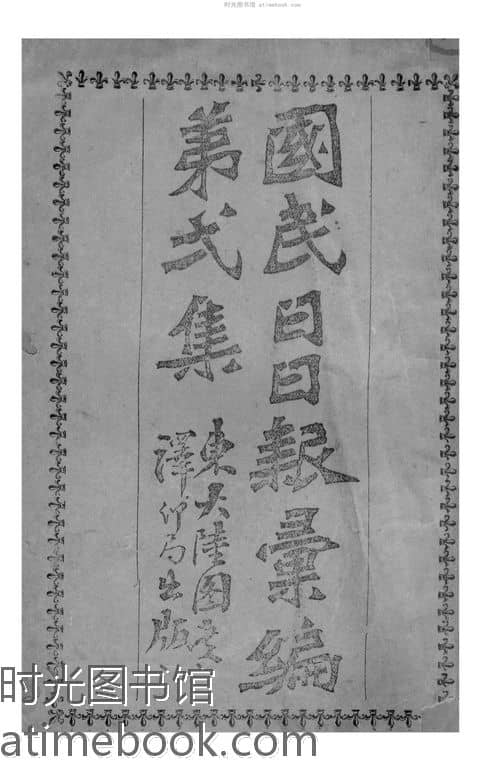 时光图书馆 atimebook.com
國民日日報彙編
弟弍集
東大陸图書
譯印局出版
时光图书馆
atimebook.com